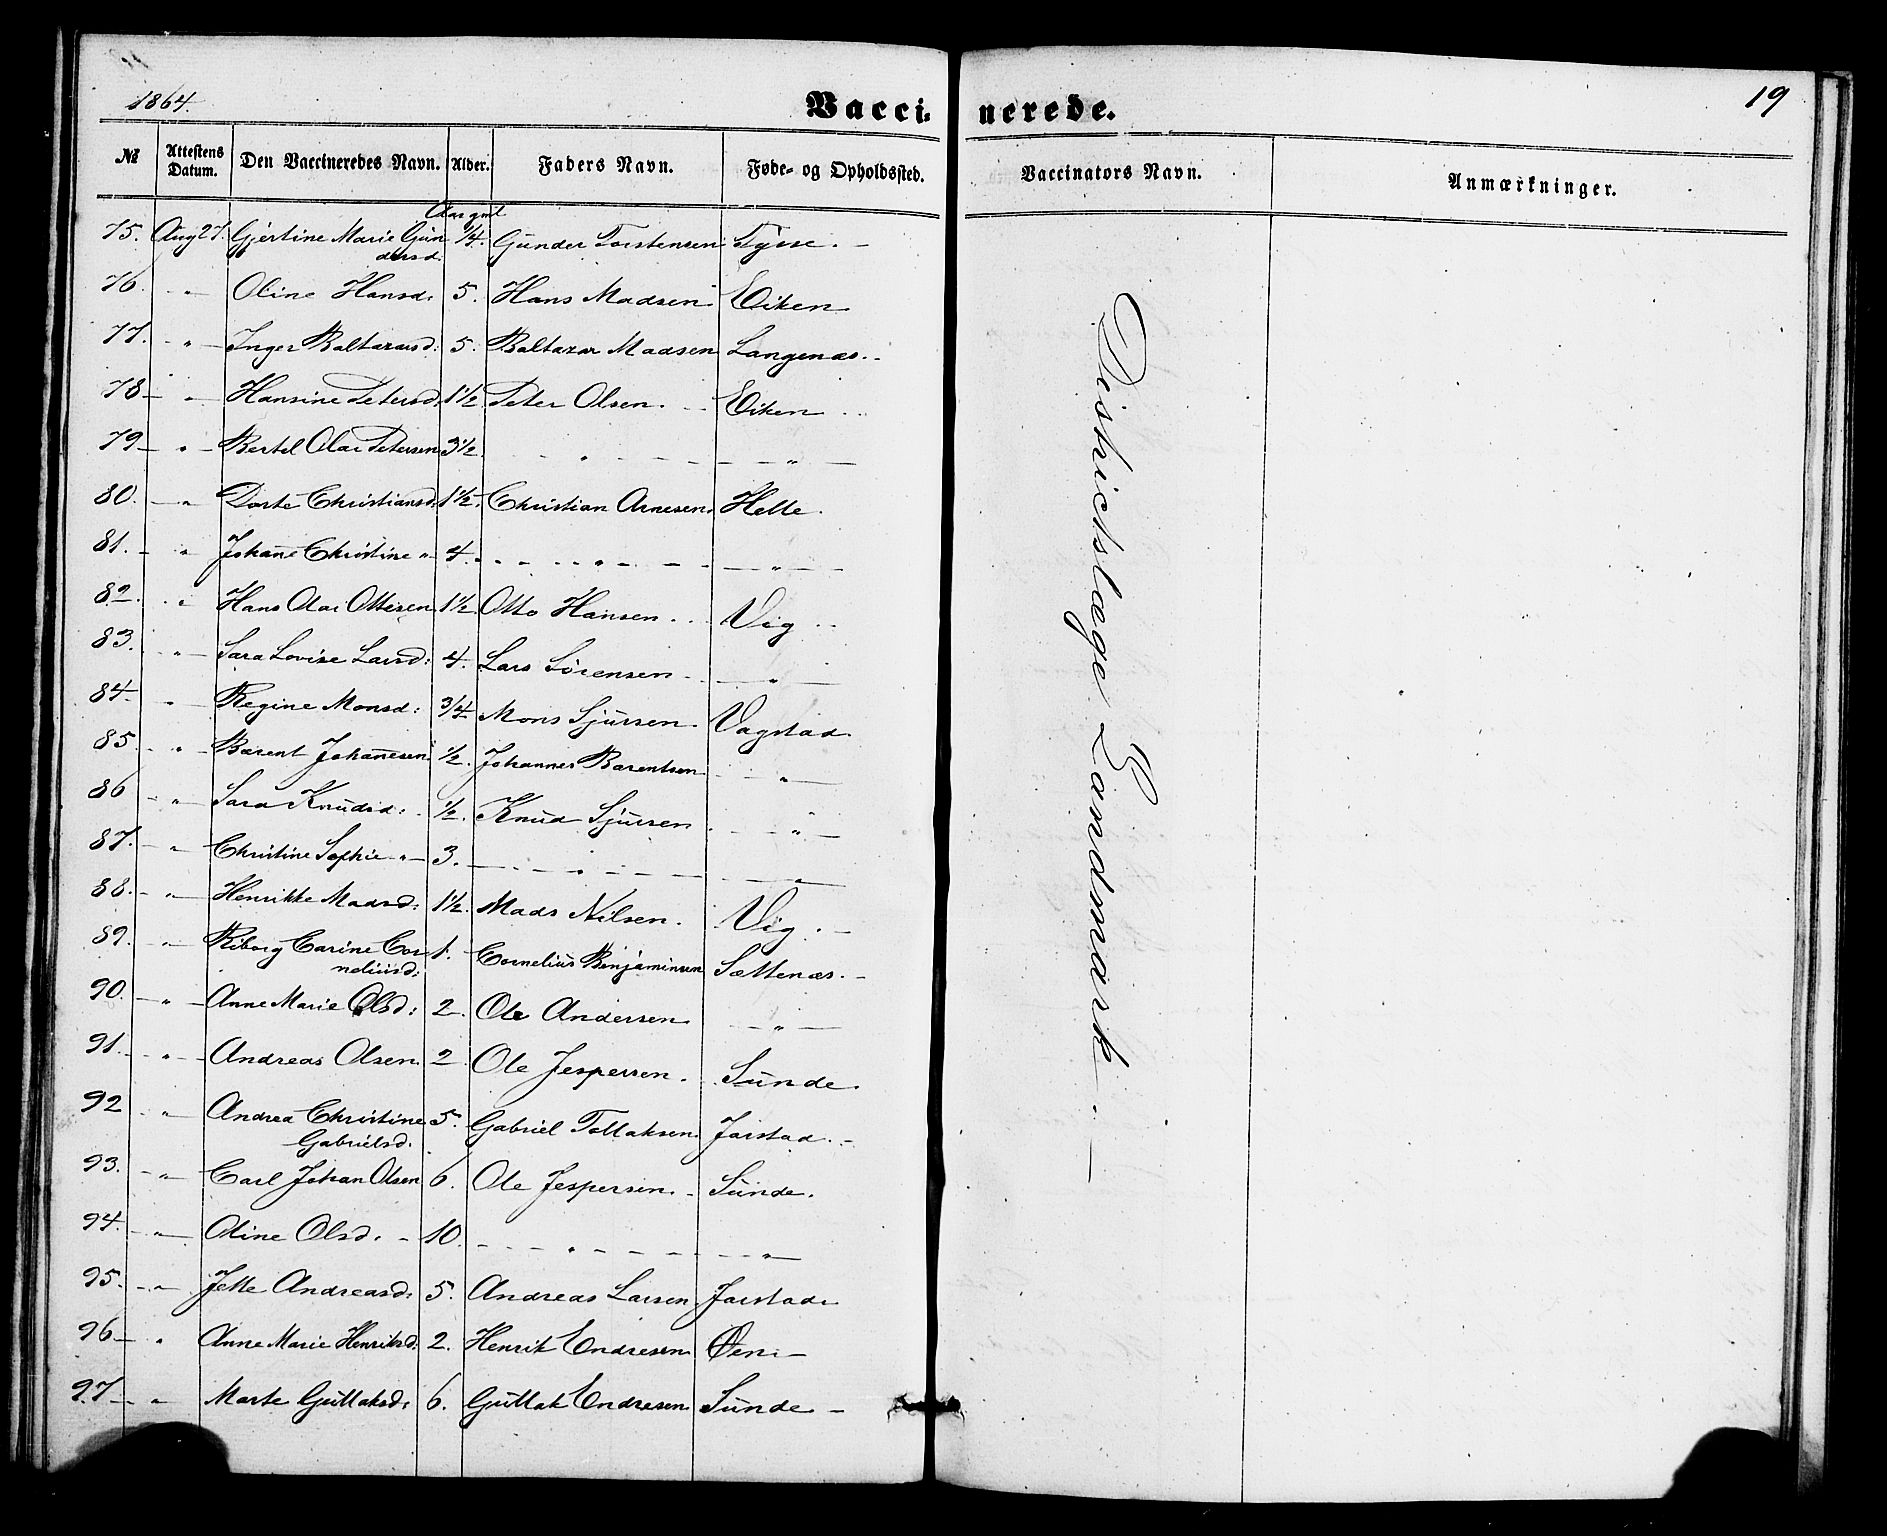 1864.
Vaccinerede.
19
№ Attestens Datum. Den Vaccineredes Navn. Alder. Faders Navn. Føde- og Opholdssted. Vaccinators Navn. Anmærkninger.
Aar gml
75. Aug 27. Gjertine Marie Gün 1/4. Günder Torstensen Tysse. -
dersd.
76. " Oline Hansd: 5. Hans Madsen Eiken
77. " Inger Baltazarsd: 5. Baltazar Madsen Langenæs. -
78 " Hansine Petersd. 1½ Peter Olsen. Eiken
79 " Bertel Olai Petersen 3½ " "
80. " Dorte Christiansd: 1½. Christian Arnesen. Helle.
81. " Johanne Christine " 4. " "
82. " Hans Olai Ottesen 1½ Otto Hansen. Vig
83. " Sara Lovise Larsd: 4. Lars Sørensen "
84. " Regine Monsd: 3/4 Mons Sjürsen. Vagstad.
85. " Barent Johannesen ½. Johannes Barentsen "
86 " Sara Knüdsd: ½. Knüd Sjürsen "
87. " Christine Sophie " 3. " "
88. " Henrikke Madsd: 1½. Mads Nilsen. Vig. -
89. " Riborg Carine Cor 1. Cornelius Benjaminsen Sættenæs. -
neliusd:
90. " Anne Marie Olsd: 2. Ole Andersen "
91. " Andreas Olsen 2 Ole Jespersen. Sünde.
92 " Andrea Christine 5. Gabriel Tollaksen Jaistad. -
Gabrielsd.
93. " Carl Johan Olsen 6. Ole Jespersen. Sünde.
94. " Oline Olsd. 10. " "
95. " Jette Andreasd: 5. Andreas Larsen Jaistad.
96 " Anne Marie Henriksd: 2. Henrik Endresen Øen. -
97 " Marte Güttaksd: 6. Güttak Endresen Sünde -
Districtslæge Landmark